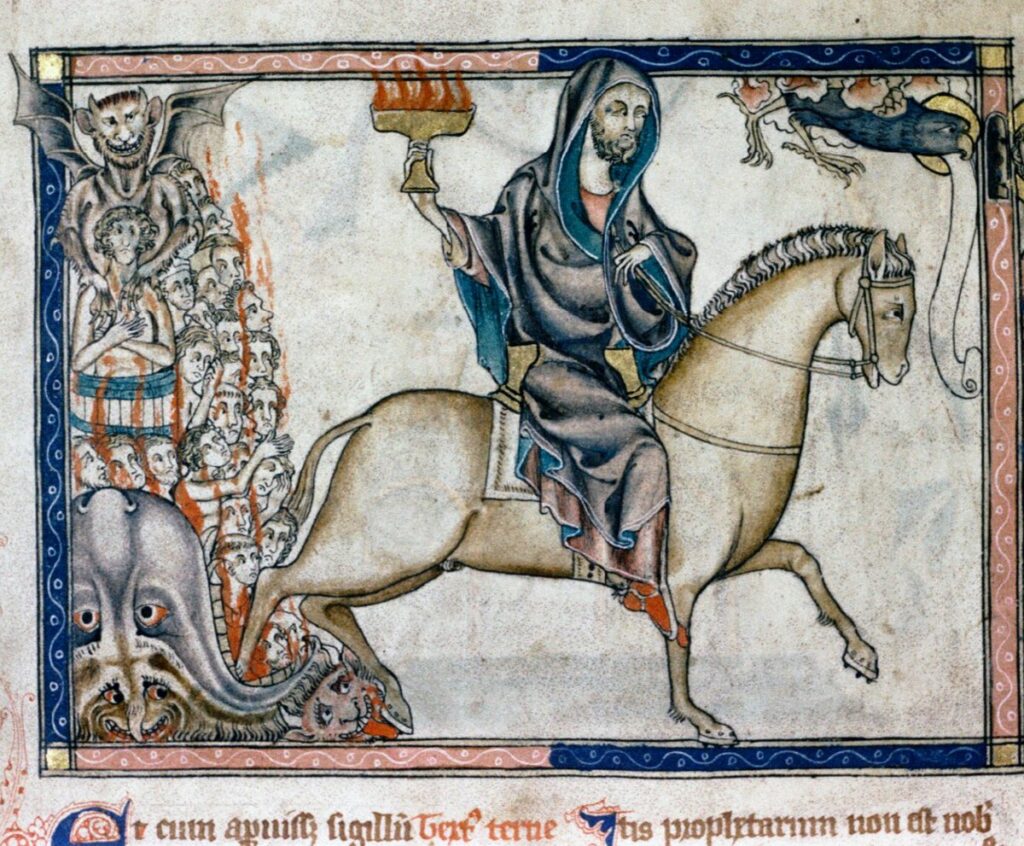 Et cum apuissꝫ sigillū
Itis prophetarum non est nob